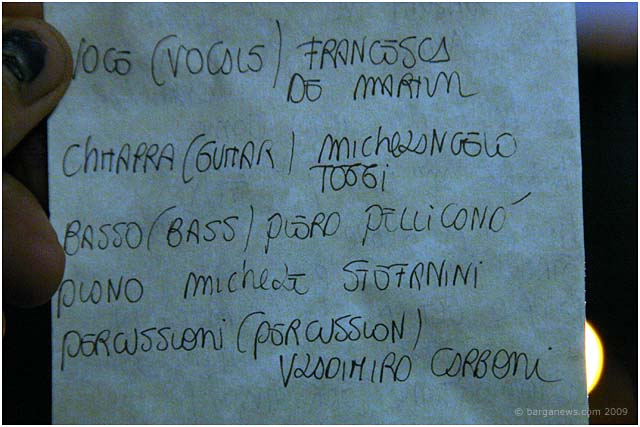 VOCE (VOCALS) FRANCESCA
DE MARTINI
CHITARRA (GUITAR) MICHELANGELO
TOGGI
BASSO (BASS) PIERO PELLICONO'
PIANO MICHELE STEFANINI
PERCUSSIONI (PERCUSSION)
VLADIMIRO CARBONI
© barganews.com 2009